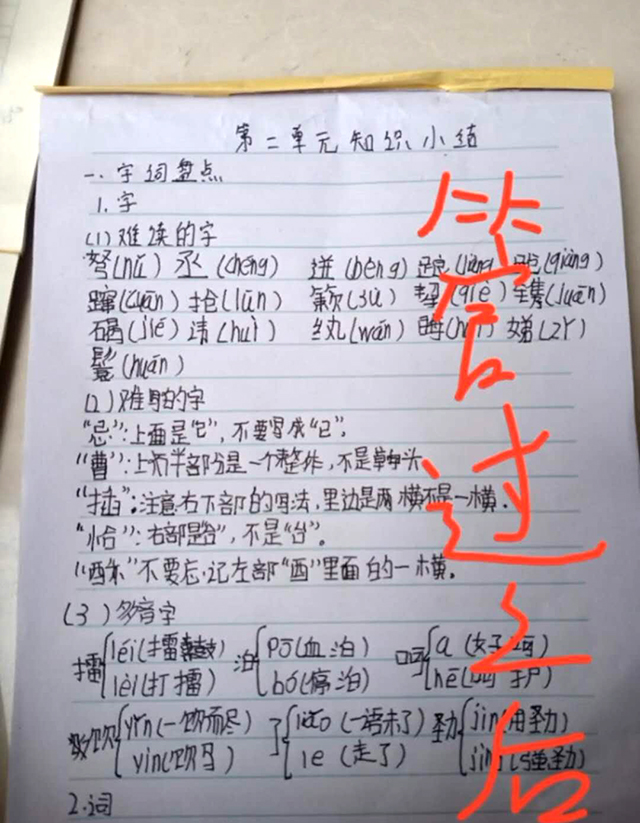 第二单元知识小结
一、字词盘点
1.字
(1)难读的字
弩(nǔ) 丞(chéng) 迸(bèng)
蹿(cuān) 抡(lūn) 簌(sù)
碣(jié) 讳(huì) 纨(wán)
鬟(huán)
(2)难写的字
"忌":上面是"己",不要写成"已"。
"曹":上方半部分是一个整体,不是草字头
"插":注意右下部的写法,里边是两横不是一横。
"恰":右部是"合",不是"台"。
不要忘记左部"酉"里面的一横。
(3)多音字
擂 léi(擂鼓) lèi(打擂) 泊 pō(血泊) bó(停泊) 呵
饮 yǐn(一饮而尽) yìn(饮马) 了 liǎo(一语未了) le(走了) 劲
2.词
管过之后